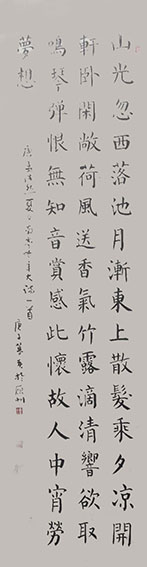 山光忽西落池月漸東上散髮乘夕凉開
軒卧閑敞荷風送香氣竹露滴清響欲取
鳴琴彈恨無知音賞感此懷故人中宵勞
夢想
唐孟浩然夏日南亭懷辛大詩一首
庚子